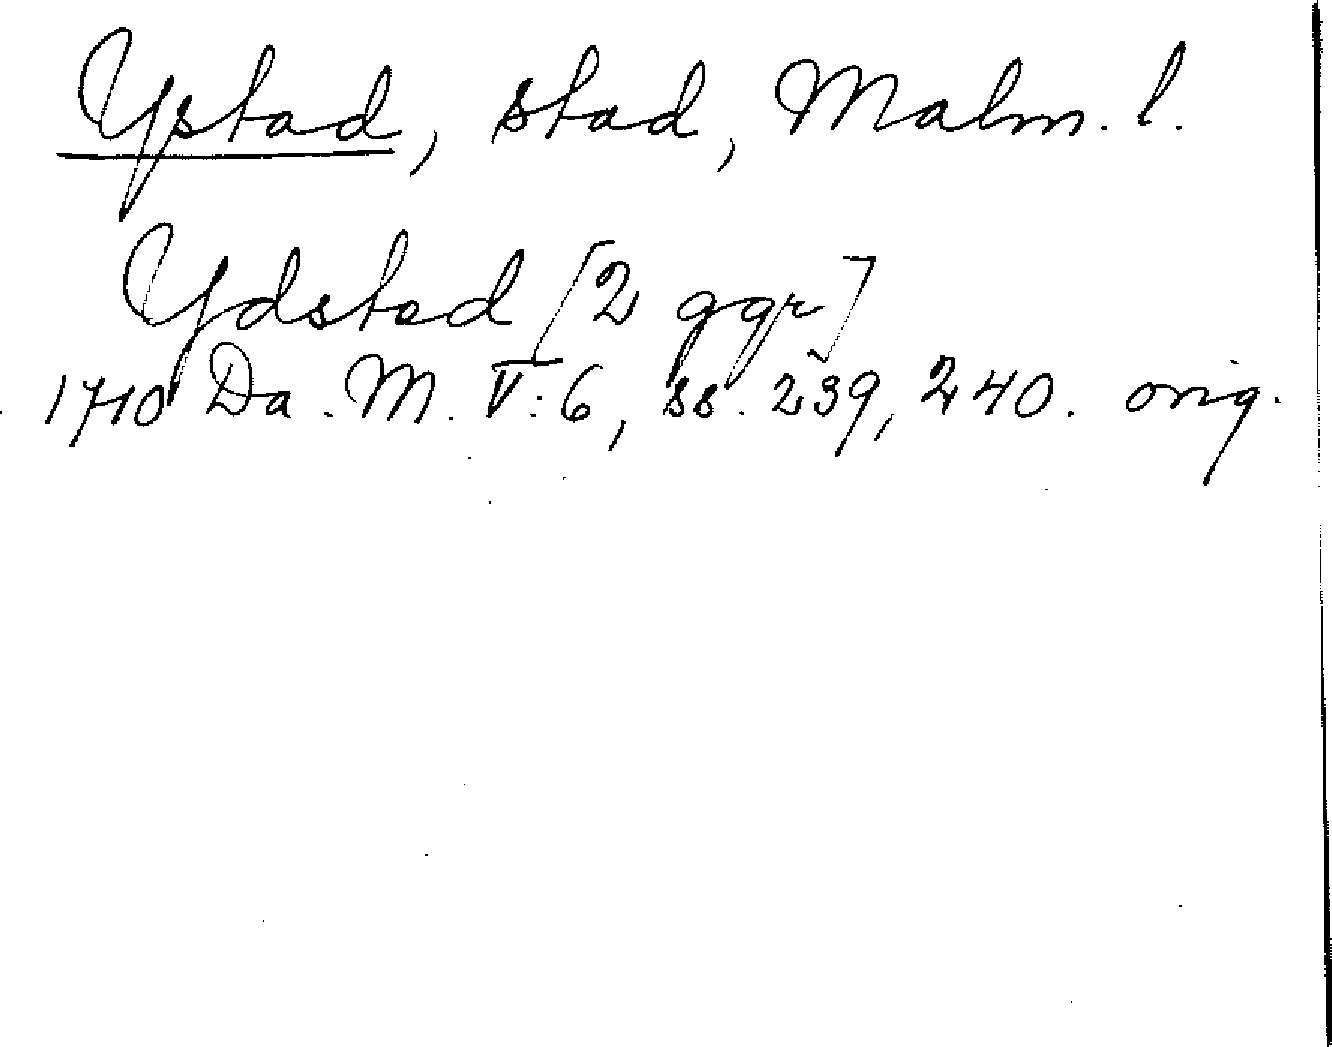 Ystad, stad, Malm. l.
Ydsted [2 ggr]
1710 Da. M. V:6, ss. 239, 240. orig.